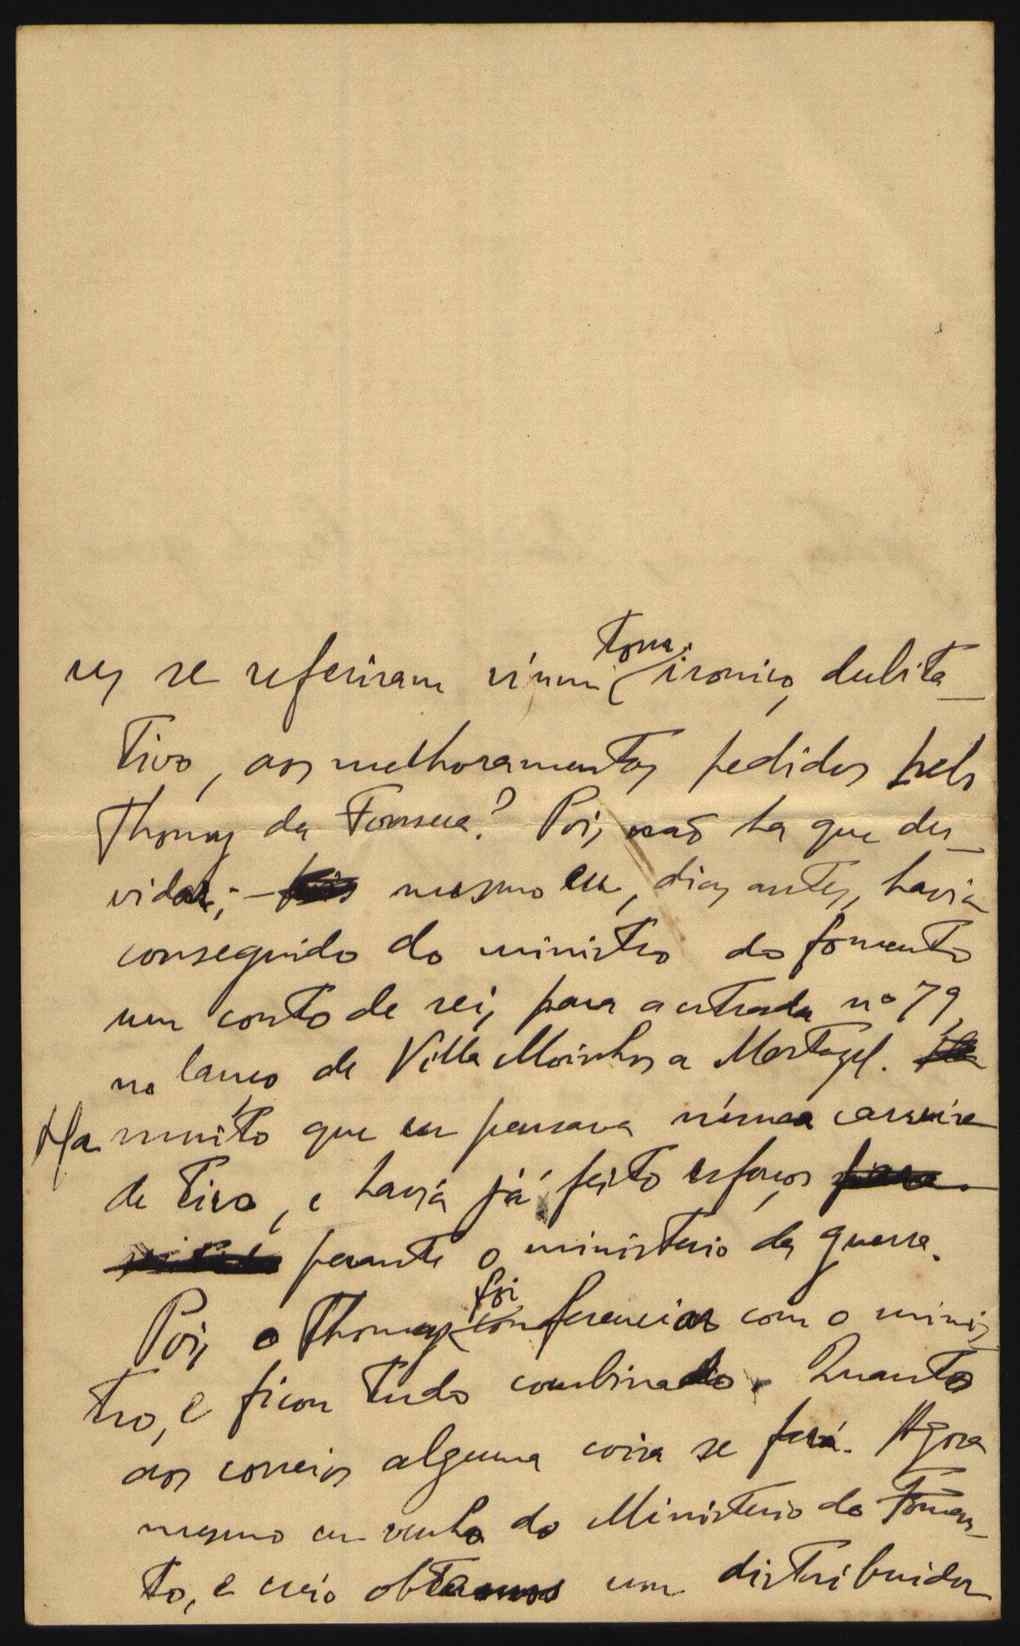 res se referiram n'um tom ironico, dubita-
tivo, aos melhoramentos pedidos pelo
Thomaz da Fonseca? Pois, não ha que du-
vidar; - mesmo eu, dias antes, havia
conseguido do ministro do fomento
um conto de reis, para a estrada nº 79,
no lanço de Villa Moinhos a Mortagel.
Ha muito que eu pensava n'uma carreira
de tiro, e havia já feito esforços
perante o ministerio da guerra.
Pois o Thomaz foi conferenciar com o minis-
tro, e ficou tudo combinado. Quanto
aos correios alguma coisa se fará. Agora
mesmo eu venho do Ministerio do Fomen-
to, e creio obtermos um distribuidor